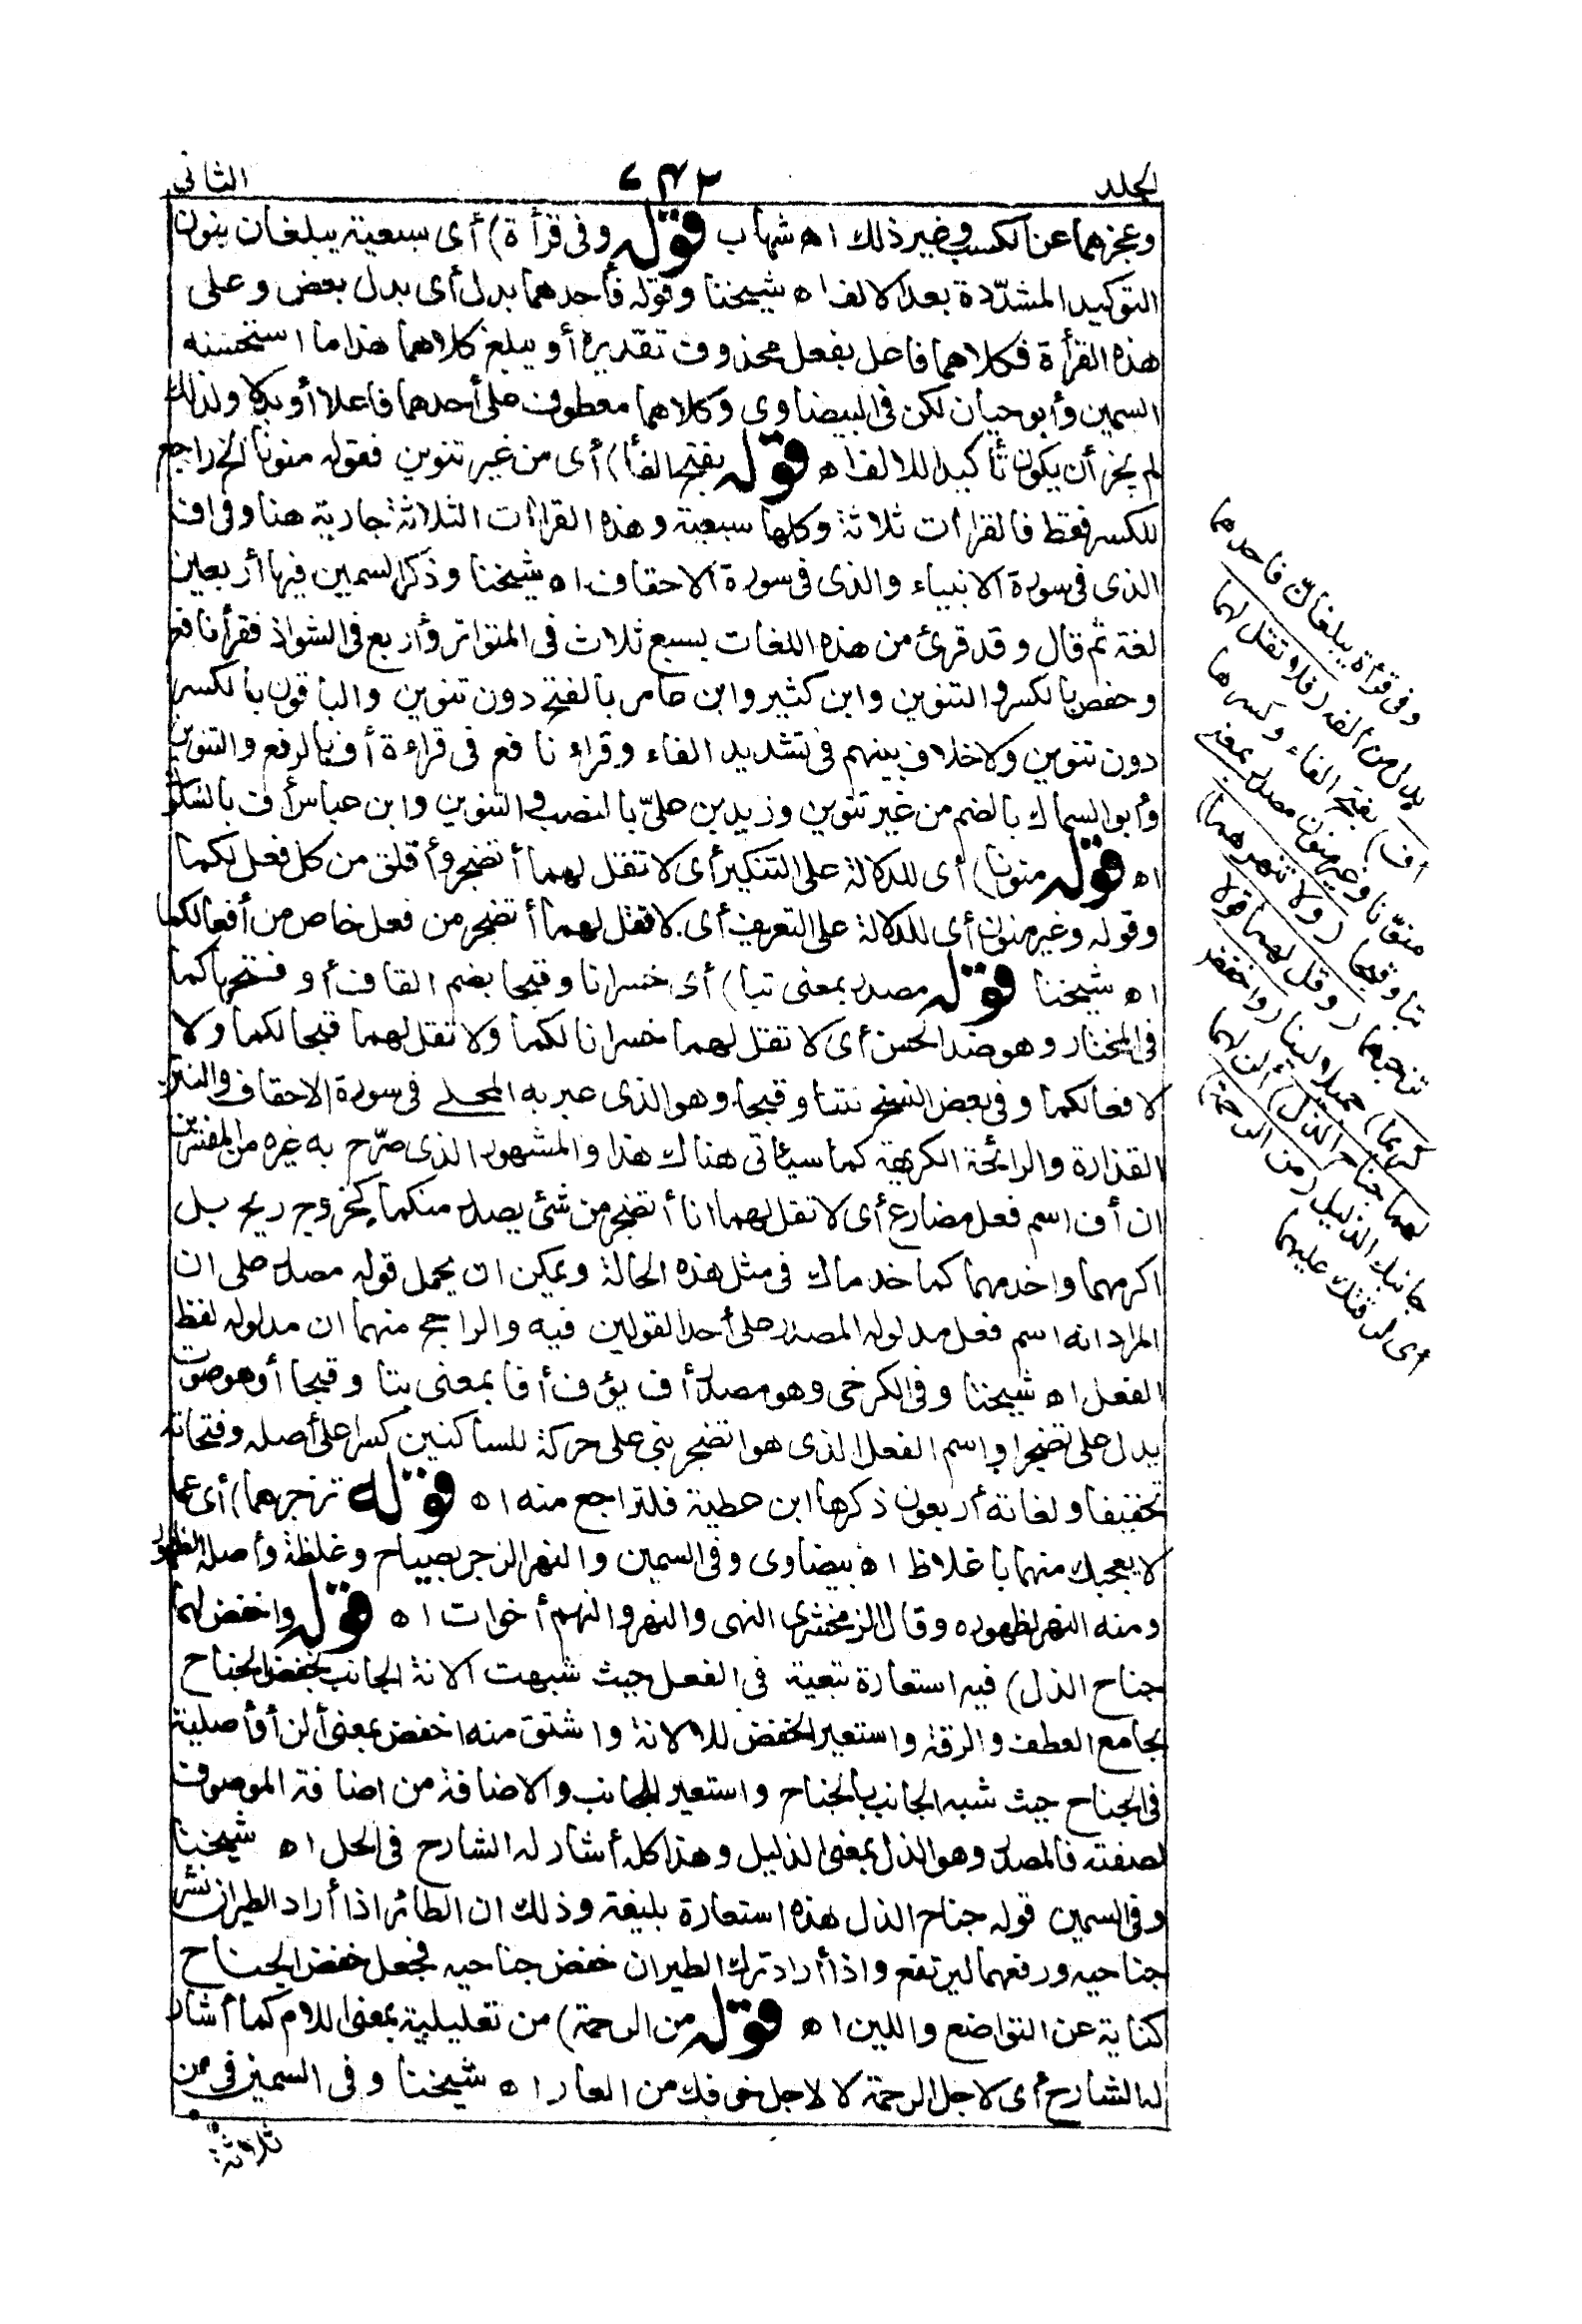 الجلد
٦٣٢
الثانى
وعجزهما عن الكسب وغير ذلك اه شهاب قوله وفى قرأة) أى سبعية يبلغان بنون
التوكيد المشدّدة بعد الالف اه شيخنا وقوله فأحدهما بدل أى بدل بعض وعلى
هذه القرأة فكلاهما فاعل بفعل محذوف تقديره أو يبلغ كلاهما هذا ما استحسنه
السمين وأبو حيان لكن فى البيضاوى وكلاهما معطوف على أحدهما فاعلا أو بدلا ولذلك
لم يجز أن يكون تأكيدا للالف اه قوله بفتح الفأ) أى من غير تنوين فقوله منونا الخ راجع
للكسر فقط فالقراأت ثلاثة وكلها سبعية وهذه القراأت الثلاثة جارية هنا وفى اف
الذى فى سورة الانبياء والذى فى سورة الاحقاف اه شيخنا وذكر السمين فيها أربعين
لغة ثم قال وقد قرئ من هذه اللغات بسبع ثلاث فى المتواتر وأربع فى الشواذ فقرأ نافع
وحفص بالكسر والتنوين وابن كثير وابن عامر بالفتح دون تنوين والباقون بالكسر
دون تنوين ولا خلاف بينهم فى تشديد الفاء وقراء نافع فى قراءة أف بالرفع والتنوين
وأبو السماك بالضم من غير تنوين وزيد بن علىّ بالنصب والتنوين وابن عباس أف بالسكون
اه قوله منونا) أى للدلالة على التنكير أى لا تقل لهما أتضجر وأقلق من كل فعل لكما
وقوله وغير منون أى للدلالة على التعريف أى لا تقل لهما أتضجر من فعل خاص من أفعالكما
اه شيخنا قوله مصدر بمعنى تبا) أى خسرانا وقبحا بضم القاف أو فتحها كما
فى المختار وهو ضد الحسن أى لا تقل لهما خسرانا لكما ولا تقل لهما قبحا لكما ولا
لافعالكما وفى بعض النسخ نتنا وقبحا وهو الذى عبر به المحلى فى سورة الاحقاف والنتن
القذارة والرائحة الكريهة كما سيأتى هناك هذا والمشهور الذى صرّح به غيره من المفسرين
ان أف اسم فعل مضارع أى لا تقل لهما انا أتضجر من شئ يصدر منكما كخروج ريح بل
اكرمهما واخدمهما كما خدماك فى مثل هذه الحالة ويمكن ان يحمل قوله مصدر على ان
المراد انه اسم فعل مدلوله المصدر على أحد القولين فيه والراجح منهما ان مدلوله لفظ
الفعل اه شيخنا وفى الكرخى وهو مصدر أف يؤف أفا بمعنى تبا وقبحا أو هو صوت
يدل على تضجر او اسم الفعل الذى هو اتضجر بنى على حركة للساكنين كسرا على أصله وفتحاته
تخفيفا ولغاته أربعون ذكرها ابن عطية فلتراجع منه اه قوله تزجرهما) أى عما
لا يعجبك منهما باغلاظ اه بيضاوى وفى السمين والنهر الزجر بصياح وغلظة وأصله الظهور
ومنه النهر لظهوره وقال الزمخشرى النهى والنهر والنهم أخوات اه قوله واخفض لهما
جناح الذل) فيه استعارة تبعية فى الفعل حيث شبهت الانة الجانب بخفض الجناح
بجامع العطف والرقة واستعير الخفض للالانة واشتق منه اخفض بمعنى ألن أو أصلية
فى الجناح حيث شبه الجانب بالجناح واستعير للجانب والاضافة من اضافة الموصوف
لصفته فالمصدر وهو الذل بمعنى الذليل وهذا كله أشار له الشارح فى الحل اه شيخنا
وفى السمين قوله جناح الذل هذه استعارة بليغة وذلك ان الطائر اذا أراد الطيران نشر
جناحيه ورفعهما ليرتفع واذا أراد ترك الطيران خفض جناحيه فجعل خفض الجناح
كناية عن التواضع واللين اه قوله من الرحمة) من تعليلية بمعنى اللام كما أشار
له الشارح أى لاجل الرحمة لا لاجل خوفك من العار اه شيخنا وفى السمين فى من
ثلاثة
وفى قرأة يبلغان فاحدهما
بدل من ألفه (فلا تقل لهما
أف) بفتح الفاء وكسرها
منوّنا وغير منون مصدر بمعنى
تبا وقبحا (ولا تنهرهما)
تزجرهما (وقل لهما قولا
كريما) جميلا لينا (واخفض
لهما جناح الذل) ألن لهما
جانبك الذليل (من الرحمة)
أى لرقتك عليهما